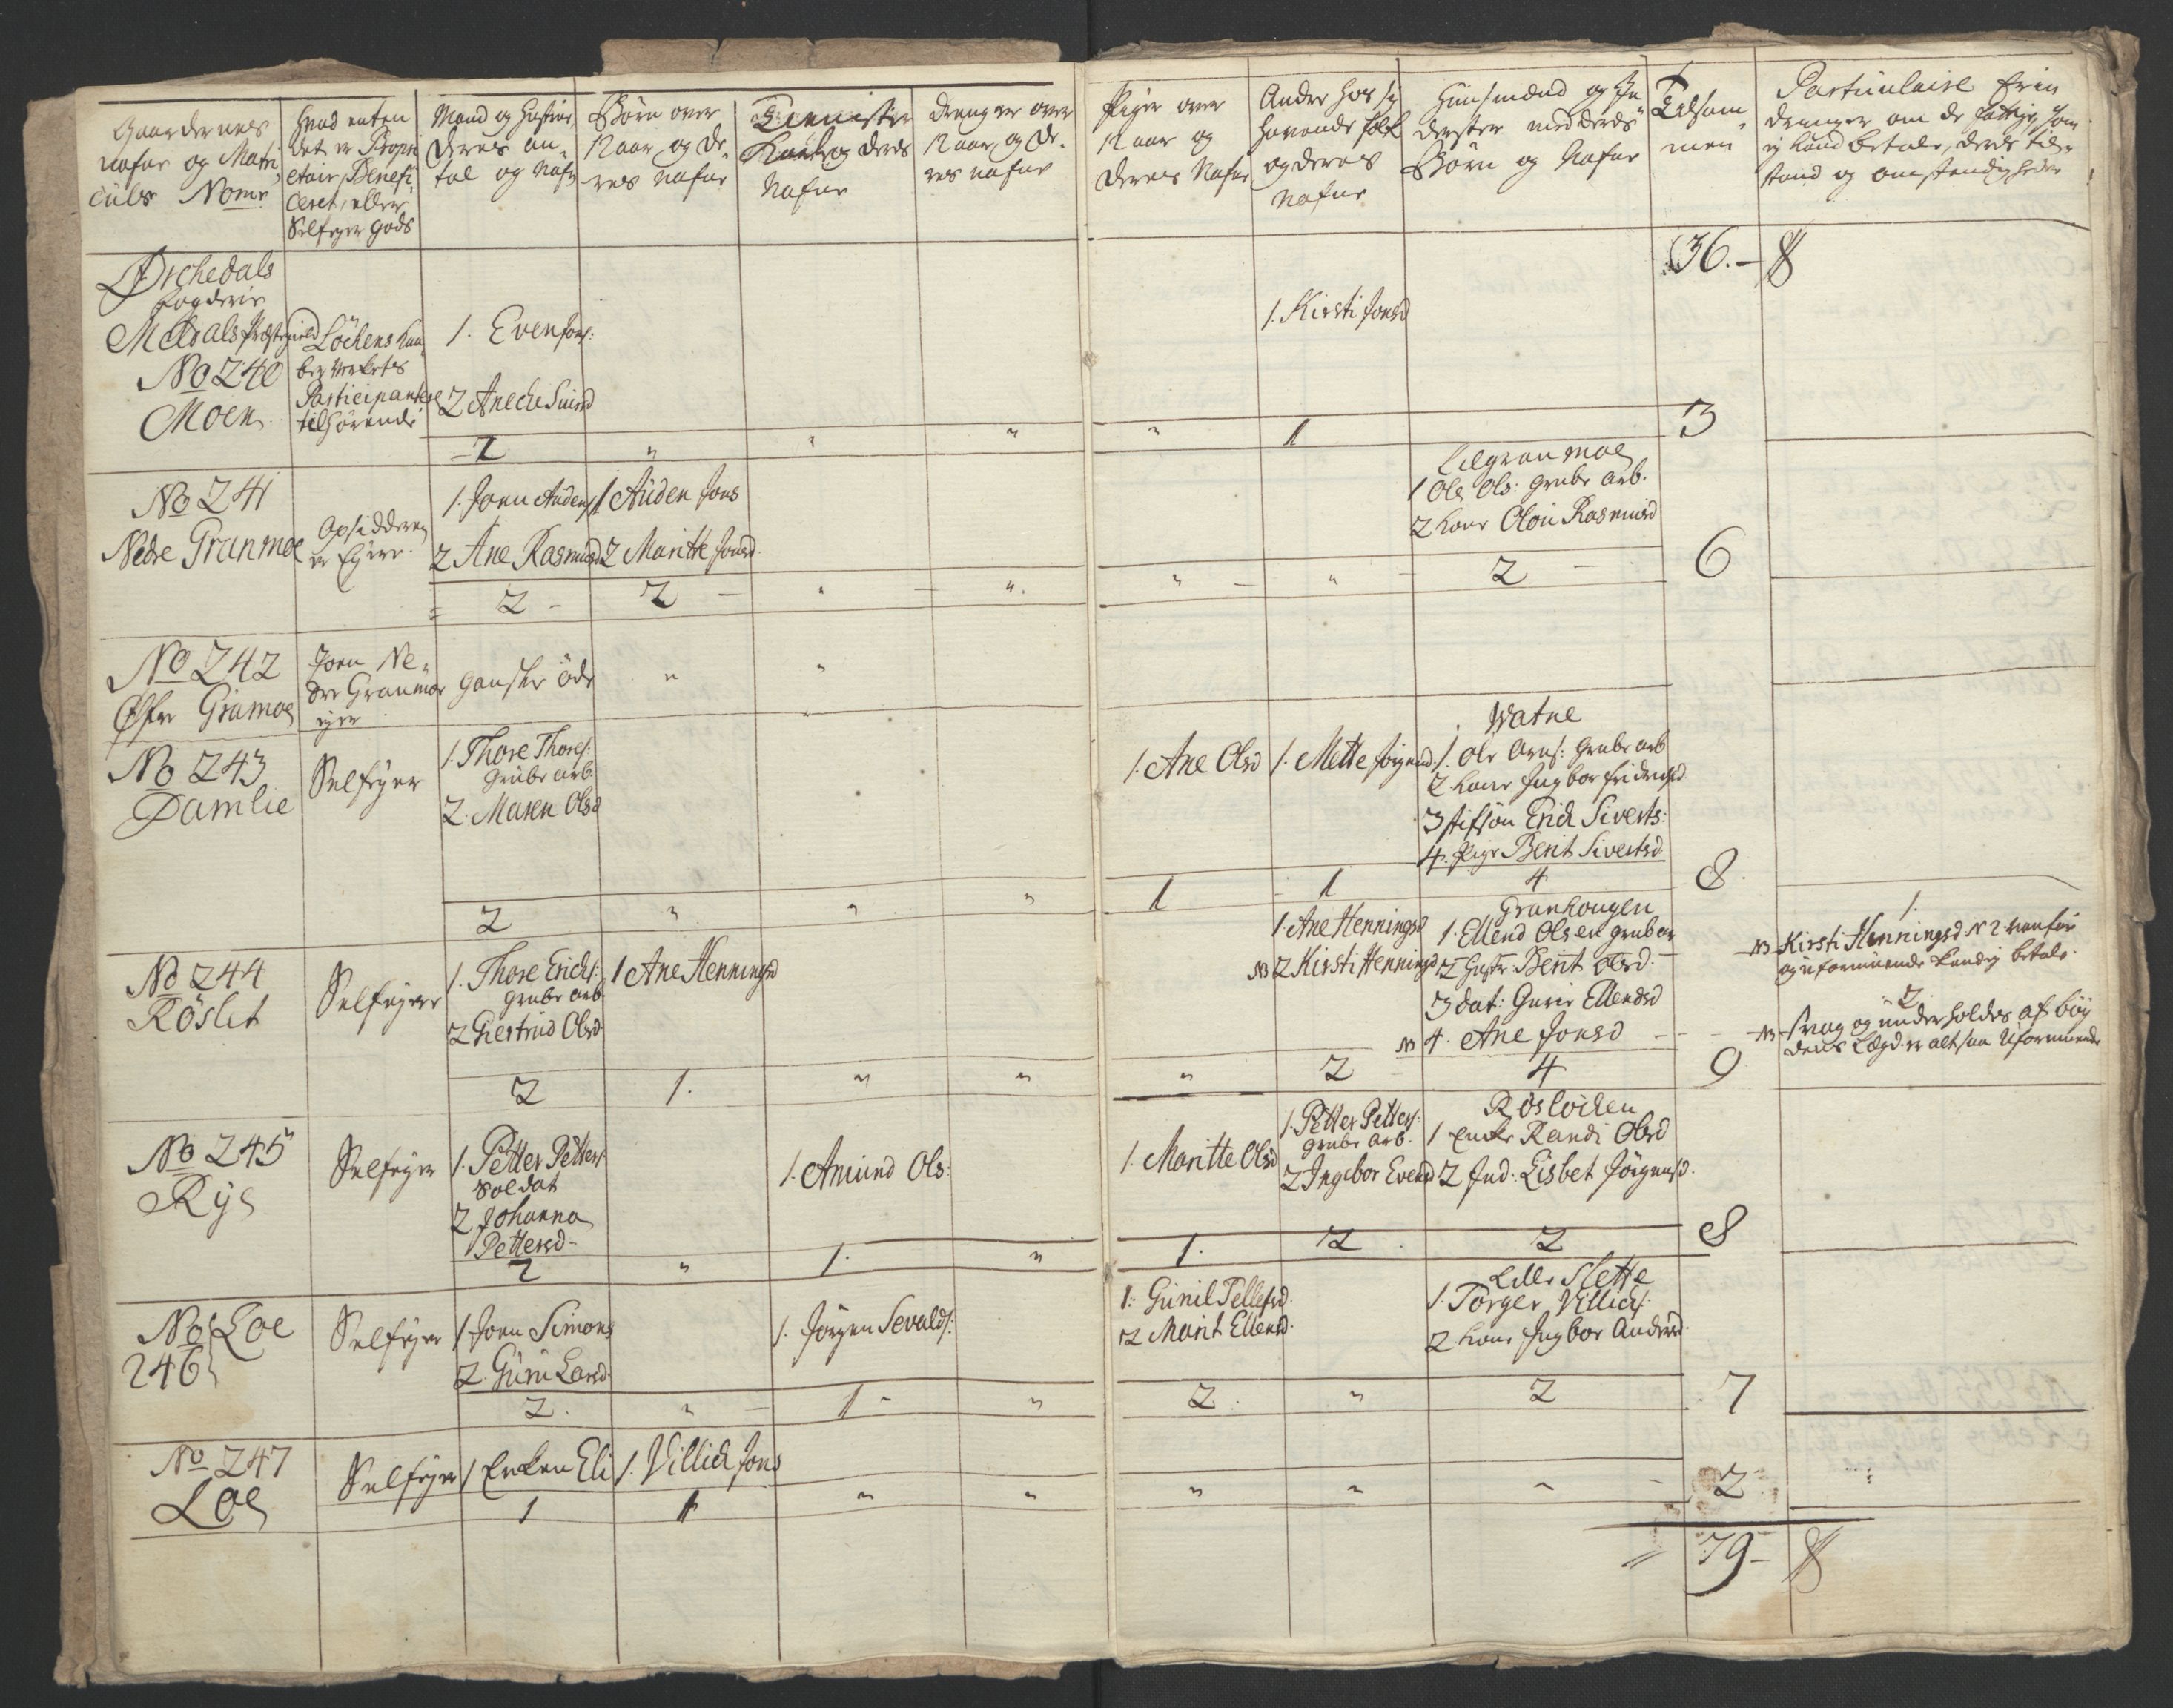 Gaardernes nafne og Matriculs Nomr
Hvad enten det er Propri etair, Benefi ceret, eller Selfeyer gods
Mand og Hustrue deres an tal og Nafn
Børn over 12 aar og de res nafne
Tienister Karle og deres Nafne
Drenge over 12 aar og de res nafne
Piger over 12 aar og deres Nafne
Andre hos sig havende folk og deres nafne
Huusmænd og In derster med deres Børn og Nafne
Tilsam men
Particulaire Erin dringer om de fattige som ej kand betale, deres til stand og omstendigheder
Ørchedals
fogderie
36. -
Meldals Præstegield
Löchens Kaa
1. Even Jons:
1. Kirsti Jonsd
No 240
ber Verkets
Moen
Participantere
2 Aneche Siursd
tilhörende
2 " " " " 1 3
No 241
Nedre Granmoe
Opsidderen
er Ejere
1. Joen Audens
1 Auden Jons
2 Ane Rasmusd
2 Maritte Jonsd
Lilgranmoe
1 Ole Ols: grube arb.
2 Kone Olou Rasmusd
2 - 2 - " - " " - " - 2 - 6
No 242
Øfre Gramoe
Joen Ne
dre Granmoe
ejer
ganske öde " "
No 243
Damlie
Selfejer
1. Thore Thores:
Grube arb.
2. Maren Olsd
1. Ane Olsd
1. Mette Jörgensd
Watne
1. Ole Arns: Grube arb
2 Kone Ingbor Fridrichsd
3 stifsön Erich Siverts:
4. Pige Berit Sivertsd
2 " " " 1 1 4 8
No 244
Röslet
Selfejere
1. Thore Erichs:
grube arb.
2 Giertrud Olsd
1 Ane Henningsd
1. Ane Henningsd
NB 2 Kirsti Henningsd
Granhougen
1. Ellend Olsen grub ar
2 Hustr: Berit Olsd. -
3 dat: Gurie Ellendsd
NB 4. Ane Jonsd - -
1.
NB Kirsti Henningsd N 2 vanför
og uformuende kand ej betale.
2
NB svag og underholdes af böy
dens Lægd er altsaa Uformuende
2 1. " " " 2 4 9
No 245
Rÿe
Selfejer
1. Petter Petters:
Soldat
2 Johanna
Pettersd -
1. Amund Ols:
1. Maritte Olsd
1. Petter Petters:
grube arb.
2 Ingebor Evensd
Röslöchen
1 Enke Randi Olsd
2 Ind: Lisbet Jörgensd.
2 " 1. " 1. 2. 2 8
No 246 Loe
Selfejer
1 Joen Simons
2. Guru Larsd.
1. Jörgen Sevalds:
1: Gunil Tellefsd.
2 Marit Ellensd.
Lille Slette
1. Torger Villichs:
2 Kone Ingbor Andersd.
2. " - 1 - " 2. " 2 7
No 247
Loe
Selfejer
1 Enken Eli
1. Villich Jons
1 1 " " " " " - 2
79 -